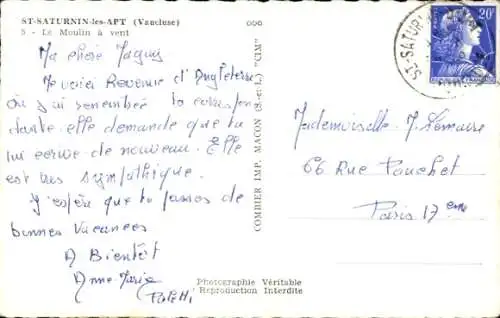 ST-SATURNIN-les-APT (Vaucluse)
5 - Le Moulin à vent
Ma chère Jaguy
Me voici Revenue d'Angleterre
où j'ai rencontré ta correspon
dante elle demande que tu
lui ecrive de nouveau. Elle
est très sympathique.
J'espère que tu passes de
bonnes vacances
A Bientôt
Anne-Marie
COMBIER IMP. MACON (S.-et-L.) "CIM"
Photographie Véritable
Reproduction Interdite
ST-SATUR
20F
Mademoiselle J. Lemaire
66 Rue Pouchet
Paris 17ème